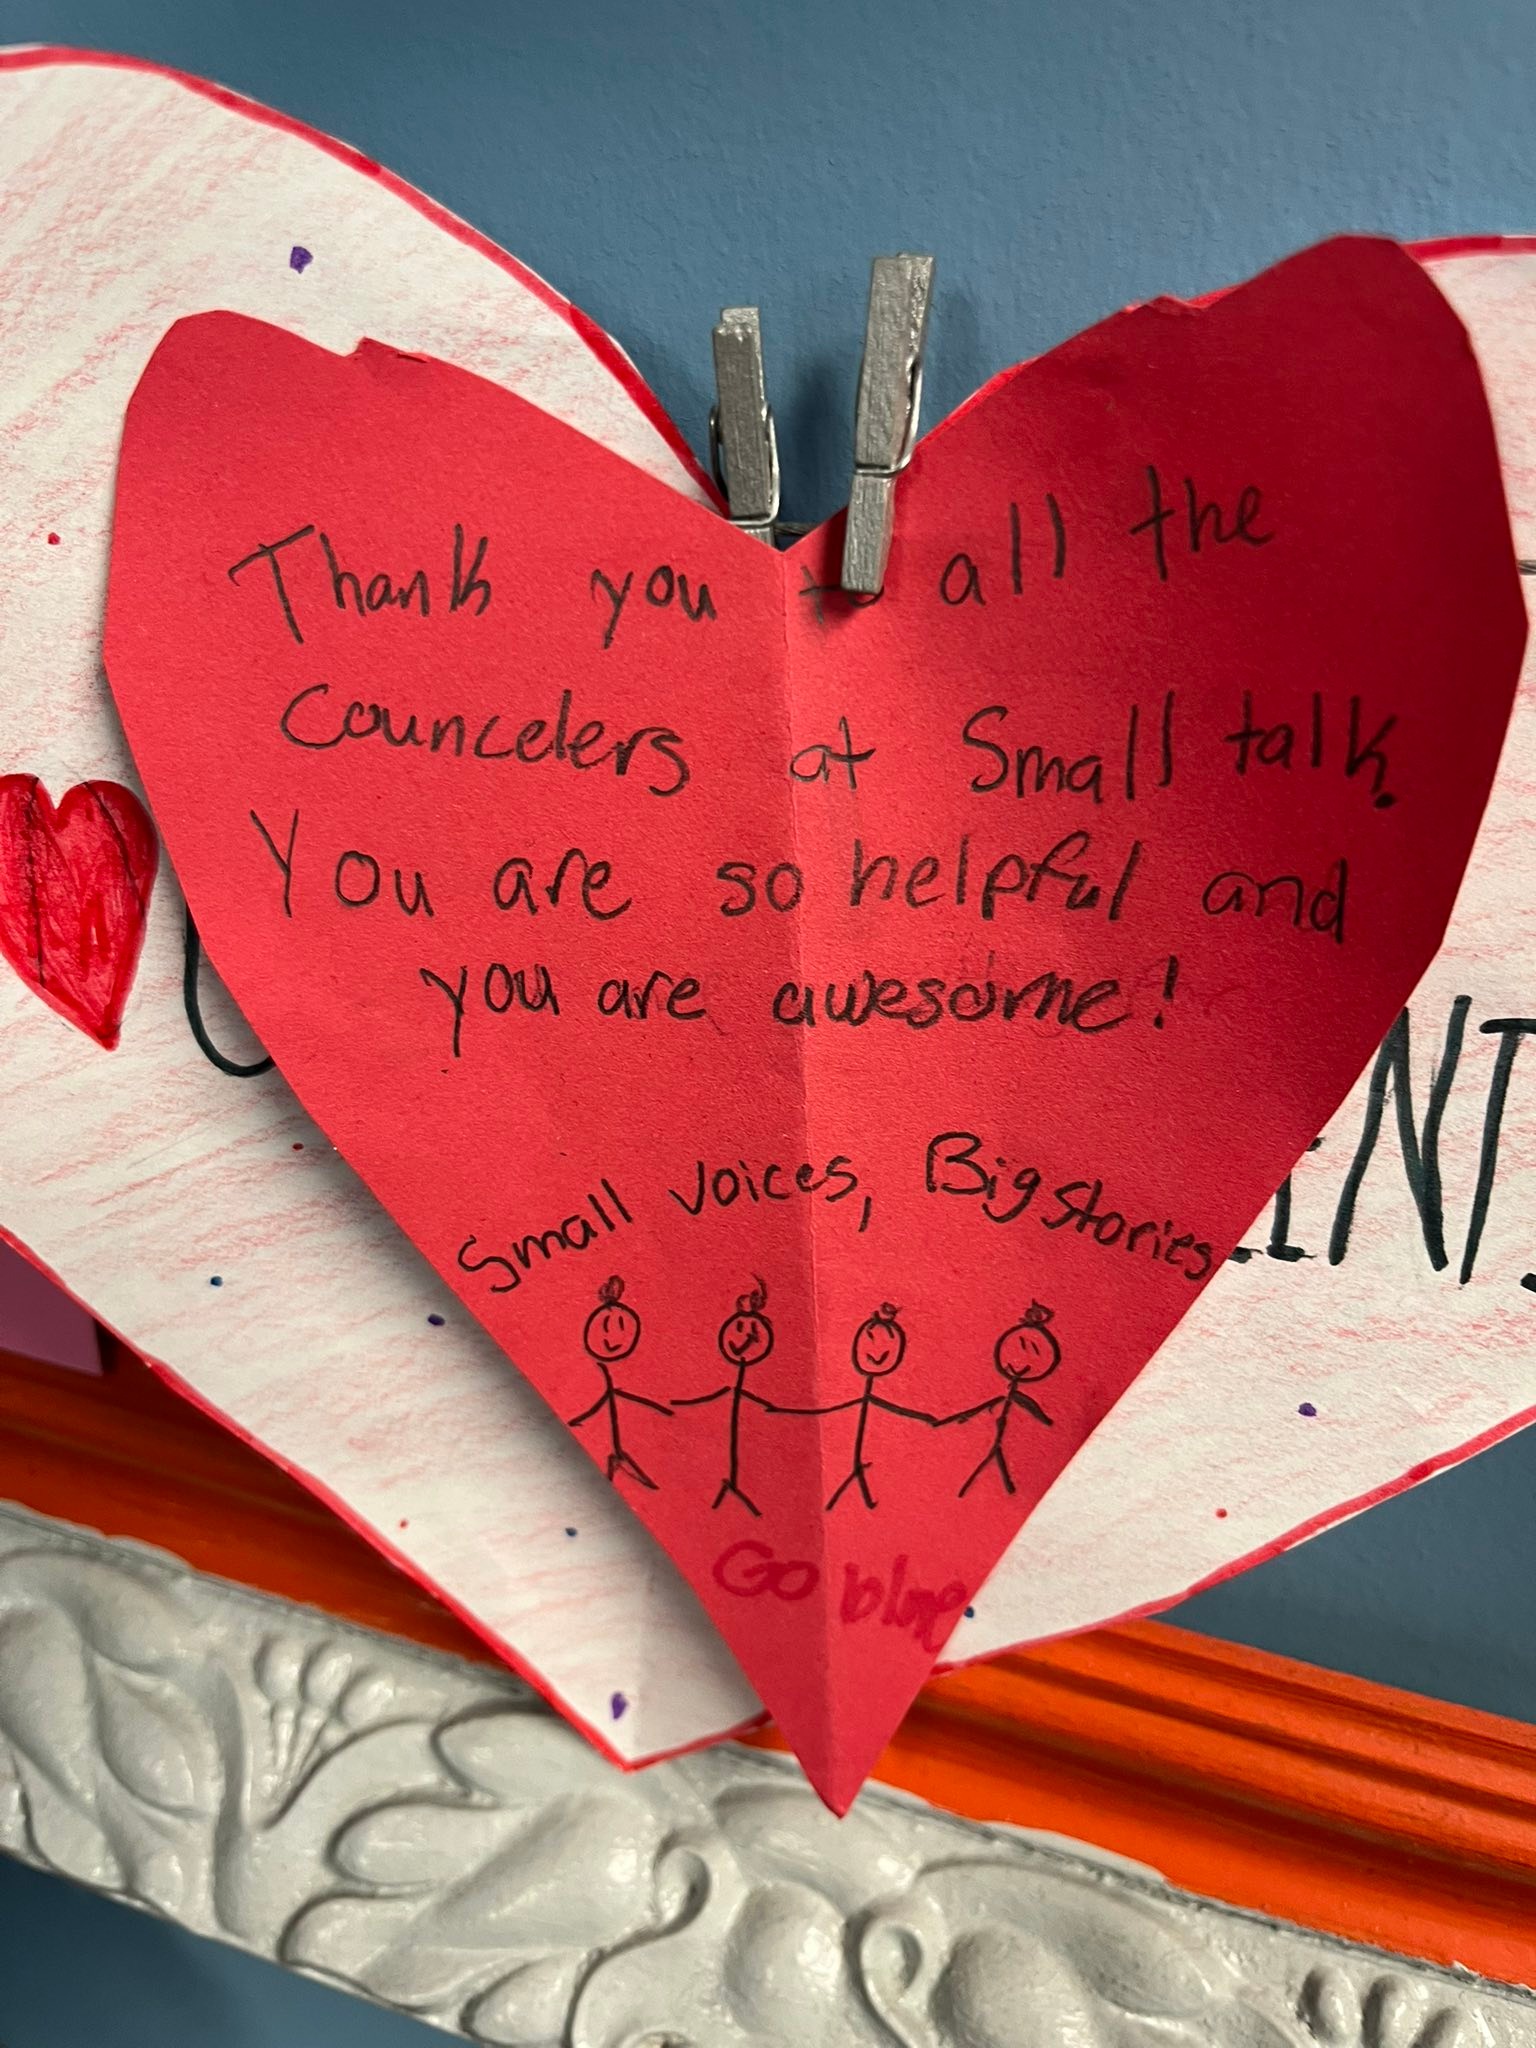 Thank you to all the
Councelers at Small talk.
You are so helpful and
you are awesome!
Small voices, Big stories
Go blue